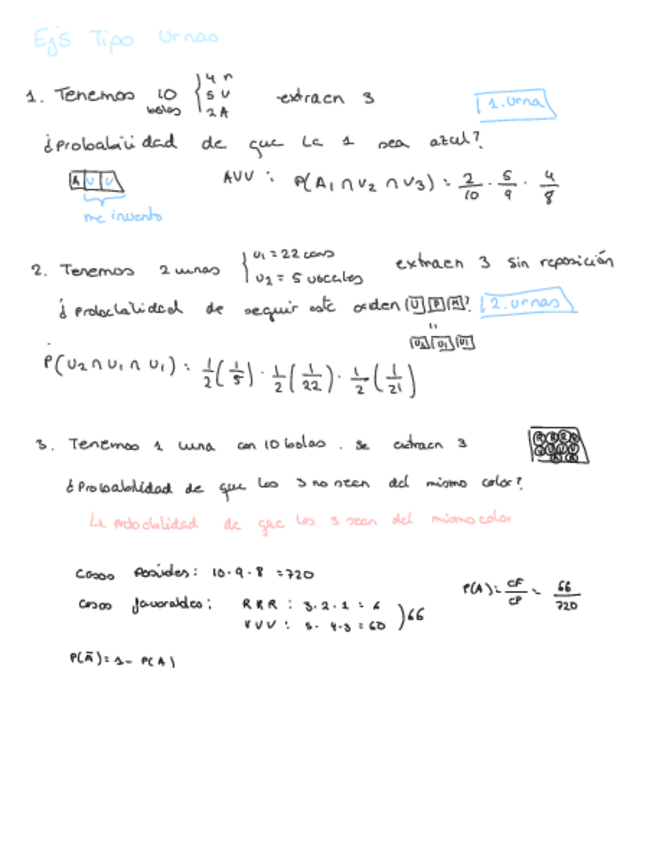 Ej's Tipo Urnas
1. Tenemos 10 bolas { 4 r 5 V 2 A extraen 3 1. Urna
¿probabilidad de que la 1 sea azul?
A V V
AVV : P(A1 ∩ V2 ∩ V3) = 2/10 · 5/9 · 4/8
me invento
2. Tenemos 2 urnas { U1 = 22 cons U2 = 5 vocales extraen 3 sin reposición
¿probabilidad de seguir este orden U P M? 2. urnas
"
U2 U1 U1
P(U2 ∩ U1 ∩ U1) = 1/2 (1/5) · 1/2 (1/22) · 1/2 (1/21)
3. Tenemos 1 urna con 10 bolas . Se extraen 3
¿Probabilidad de que los 3 no sean del mismo color?
La probabilidad de que los 3 sean del mismo color
Casos Posibles: 10 · 9 · 8 = 720
Casos favorables: RRR : 3 · 2 · 1 = 6
VVV : 5 · 4 · 3 = 60 ) 66
P(A) = CF/CP = 66/720
P(Ā) = 1 - P(A)